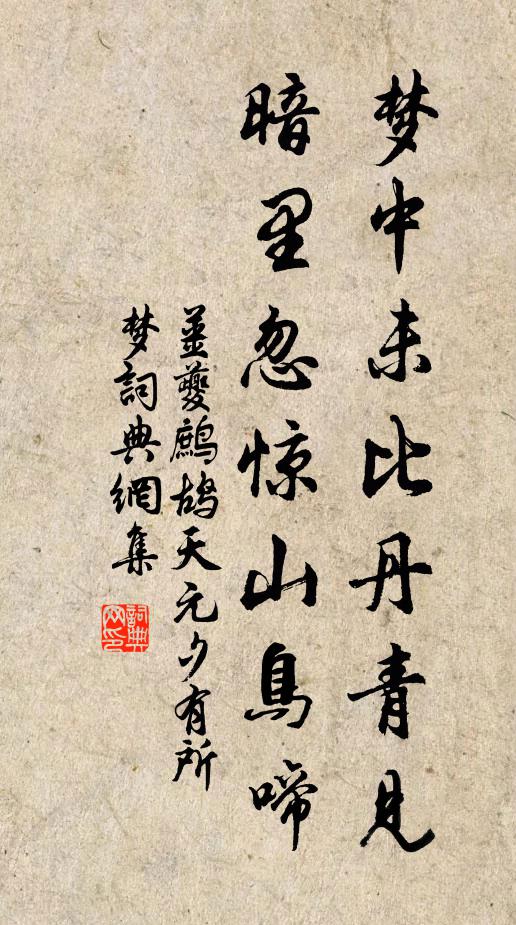 梦中未比丹青见
暗里忽惊山鸟啼
姜夔鹧鸪天元夕有所
梦词典網集
詞典
网印